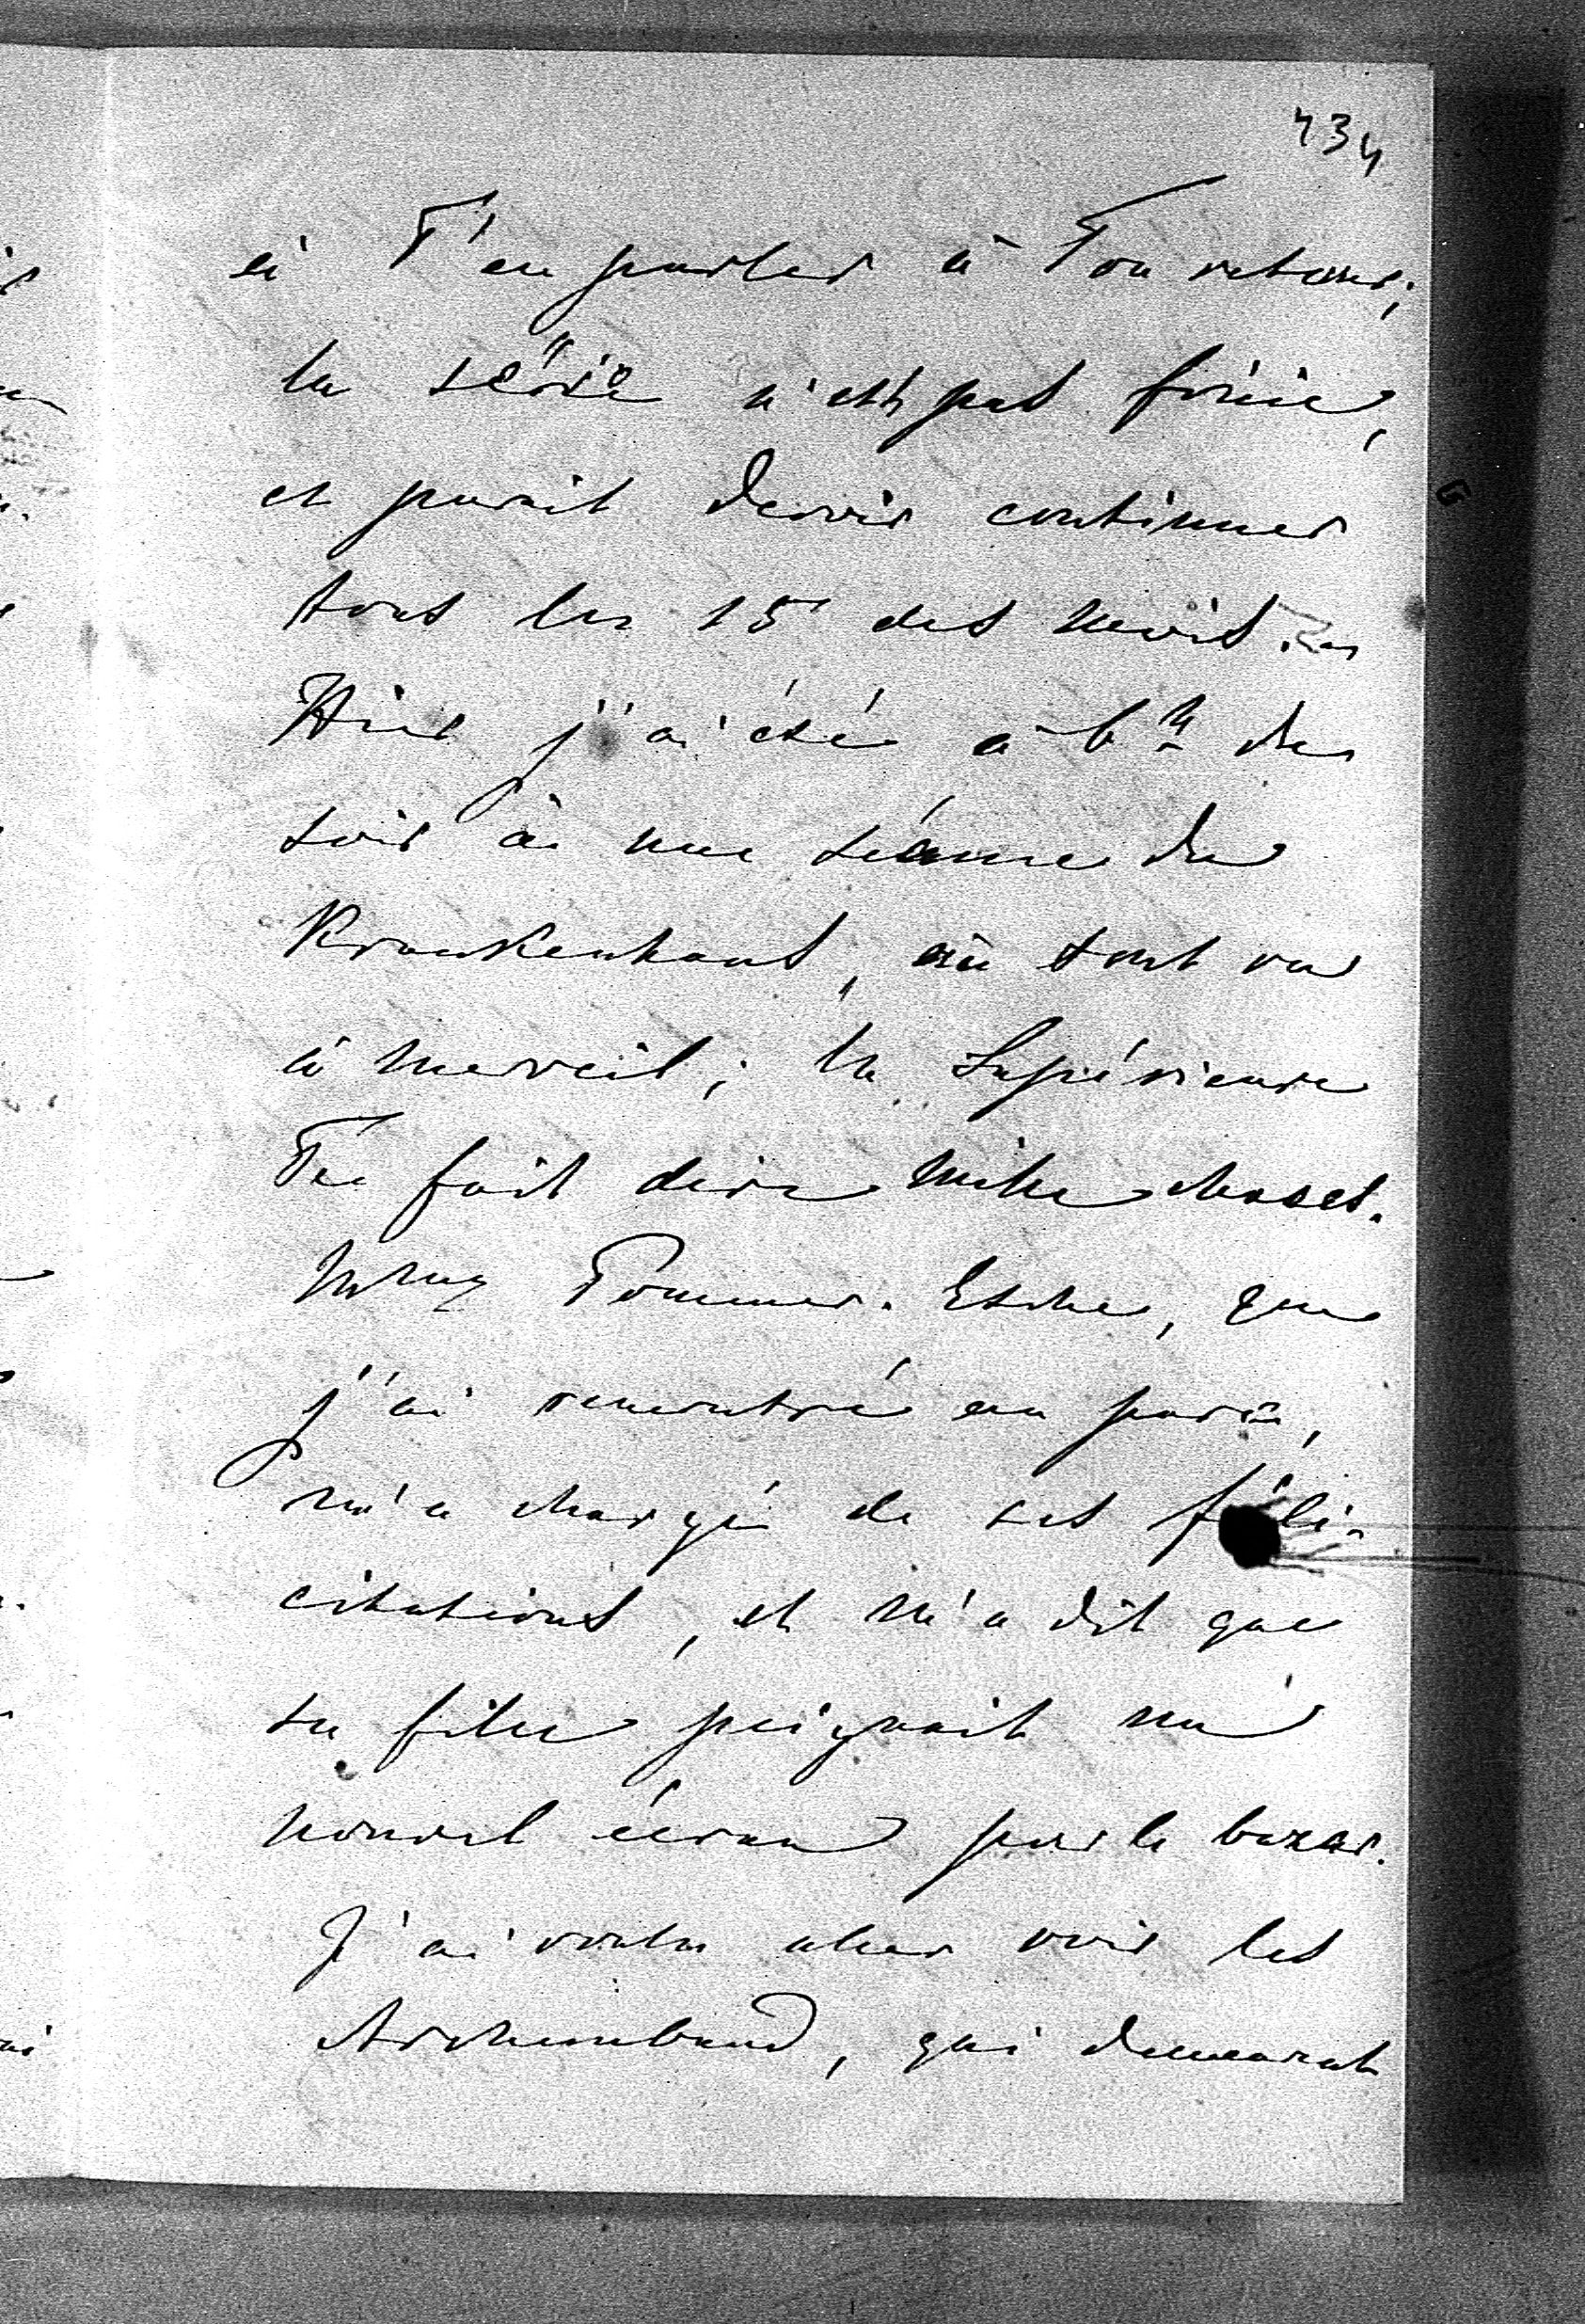 434
à T'en parler à Ton retour;
la série n'est pas finie,
et parait devoir continuer
tous les 15 des mois. –
Hier j'ai été à 6 h du
soir à une séance du
Krankenhaus, où tout va
à merveil; la Supérieure
Te fait dire mille choses.
Mme Pommer-Esche, que
j'ai rencontré au parc,
m'a chargé de ses féli-
citations, et m'a dit que
sa fille peignait un
nouvel écran pour le bazar.
J'ai voulu aller voir les
Archambaud, qui demeurent